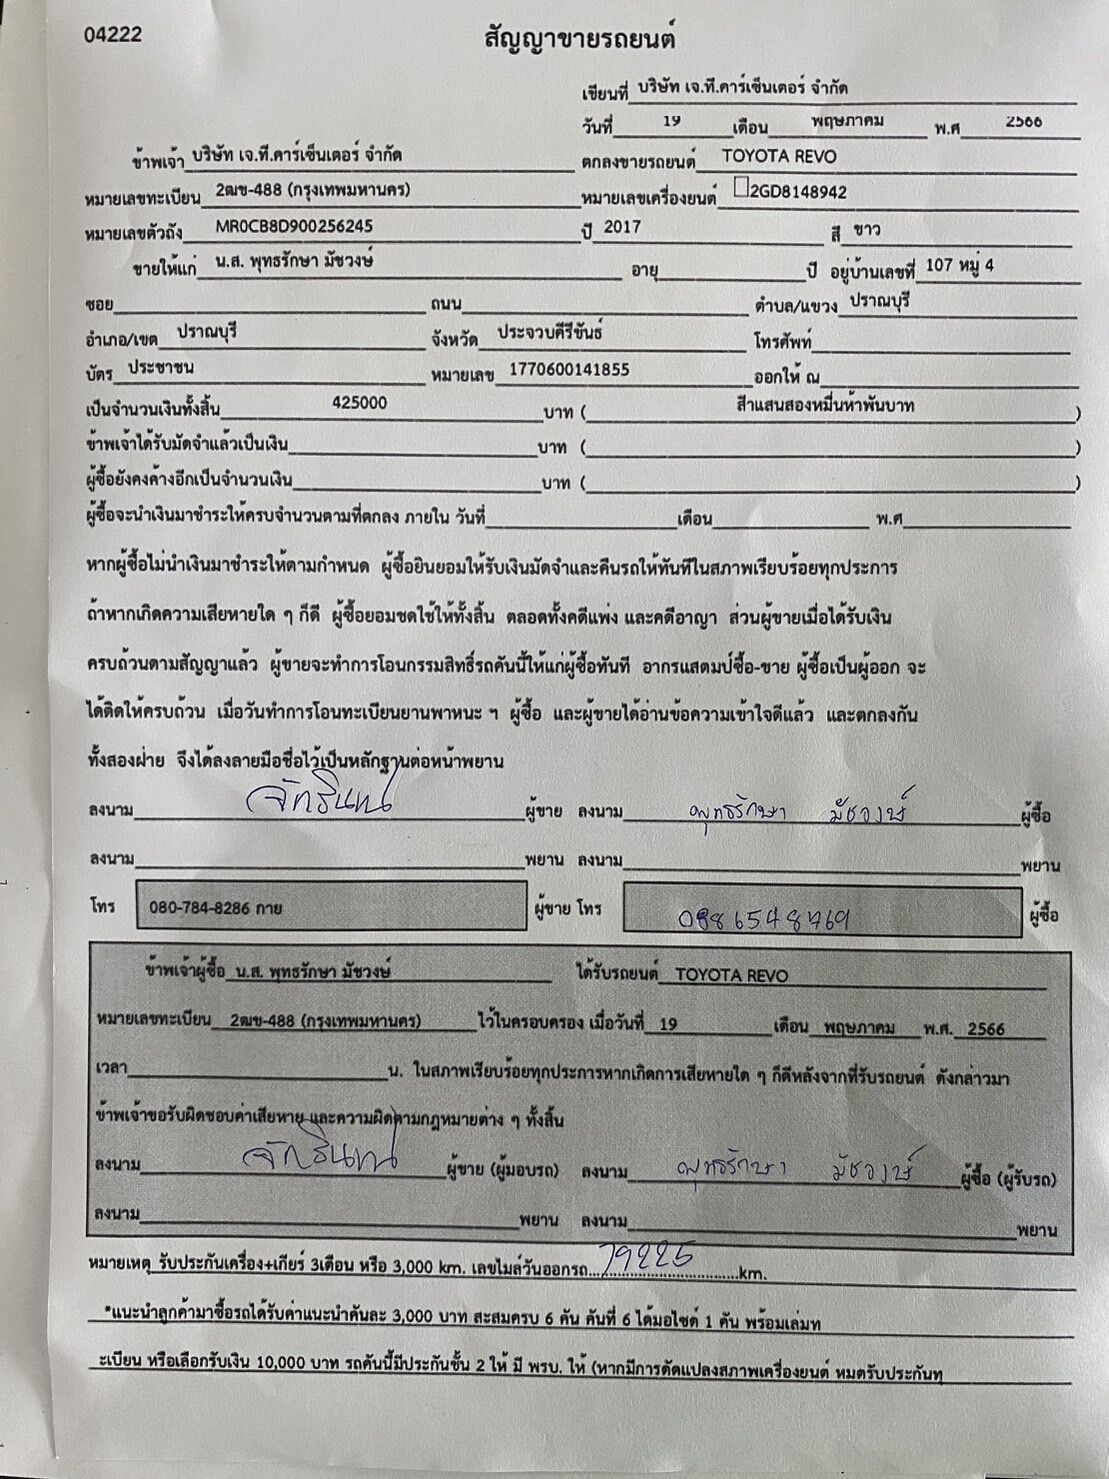 04222
สัญญาขายรถยนต์
เขียนที่ บริษัท เจ.ที.คาร์เซ็นเตอร์ จำกัด
วันที่ 19 เดือน พฤษภาคม พ.ศ 2566
ข้าพเจ้า บริษัท เจ.ที.คาร์เซ็นเตอร์ จำกัด ตกลงขายรถยนต์ TOYOTA REVO
หมายเลขทะเบียน 2ฒข-488 (กรุงเทพมหานคร) หมายเลขเครื่องยนต์ 2GD8148942
หมายเลขตัวถัง MR0CB8D900256245 ปี 2017 สี ขาว
ขายให้แก่ น.ส. พุทธรักษา มัชวงษ์ อายุ ปี อยู่บ้านเลขที่ 107 หมู่ 4
ซอย ถนน ตำบล/แขวง ปราณบุรี
อำเภอ/เขต ปราณบุรี จังหวัด ประจวบคีรีขันธ์ โทรศัพท์
บัตร ประชาชน หมายเลข 1770600141855 ออกให้ ณ
เป็นจำนวนเงินทั้งสิ้น 425000 บาท ( สี่แสนสองหมื่นห้าพันบาท )
ข้าพเจ้าได้รับมัดจำแล้วเป็นเงิน บาท ( )
ผู้ซื้อยังคงค้างอีกเป็นจำนวนเงิน บาท ( )
ผู้ซื้อจะนำเงินมาชำระให้ครบจำนวนตามที่ตกลง ภายใน วันที่ เดือน พ.ศ
หากผู้ซื้อไม่นำเงินมาชำระให้ตามกำหนด ผู้ซื้อยินยอมให้รับเงินมัดจำและคืนรถให้ทันทีในสภาพเรียบร้อยทุกประการ
ถ้าหากเกิดความเสียหายใด ๆ ก็ดี ผู้ซื้อยอมชดใช้ให้ทั้งสิ้น ตลอดทั้งคดีแพ่ง และคดีอาญา ส่วนผู้ขายเมื่อได้รับเงิน
ครบถ้วนตามสัญญาแล้ว ผู้ขายจะทำการโอนกรรมสิทธิ์รถคันนี้ให้แก่ผู้ซื้อทันที อากรแสตมป์ซื้อ-ขาย ผู้ซื้อเป็นผู้ออก จะ
ได้ติดให้ครบถ้วน เมื่อวันทำการโอนทะเบียนยานพาหนะ ฯ ผู้ซื้อ และผู้ขายได้อ่านข้อความเข้าใจดีแล้ว และตกลงกัน
ทั้งสองฝ่าย จึงได้ลงลายมือชื่อไว้เป็นหลักฐานต่อหน้าพยาน
ลงนาม จักรินทน์ ผู้ขาย ลงนาม พุทธรักษา มัชวงษ์ ผู้ซื้อ
ลงนาม พยาน ลงนาม พยาน
โทร 080-784-8286 กาย ผู้ขาย โทร 0986548769 ผู้ซื้อ
ข้าพเจ้าผู้ซื้อ น.ส. พุทธรักษา มัชวงษ์ ได้รับรถยนต์ TOYOTA REVO
หมายเลขทะเบียน 2ฒข-488 (กรุงเทพมหานคร) ไว้ในครอบครอง เมื่อวันที่ 19 เดือน พฤษภาคม พ.ศ. 2566
เวลา น. ในสภาพเรียบร้อยทุกประการหากเกิดการเสียหายใด ๆ ก็ดีหลังจากที่รับรถยนต์ ดังกล่าวมา
ข้าพเจ้าขอรับผิดชอบค่าเสียหาย และความผิดตามกฎหมายต่าง ๆ ทั้งสิ้น
ลงนาม จักรินทน์ ผู้ขาย (ผู้มอบรถ) ลงนาม พุทธรักษา มัชวงษ์ ผู้ซื้อ (ผู้รับรถ)
ลงนาม พยาน ลงนาม พยาน
หมายเหตุ รับประกันเครื่อง+เกียร์ 3เดือน หรือ 3,000 km. เลขไมล์วันออกรถ 79225 km.
*แนะนำลูกค้ามาซื้อรถได้รับค่าแนะนำคันละ 3,000 บาท สะสมครบ 6 คัน คันที่ 6 ได้มอไซด์ 1 คัน พร้อมเล่มท
ะเบียน หรือเลือกรับเงิน 10,000 บาท รถคันนี้มีประกันชั้น 2 ให้ มี พรบ. ให้ (หากมีการดัดแปลงสภาพเครื่องยนต์ หมดรับประกันทุ